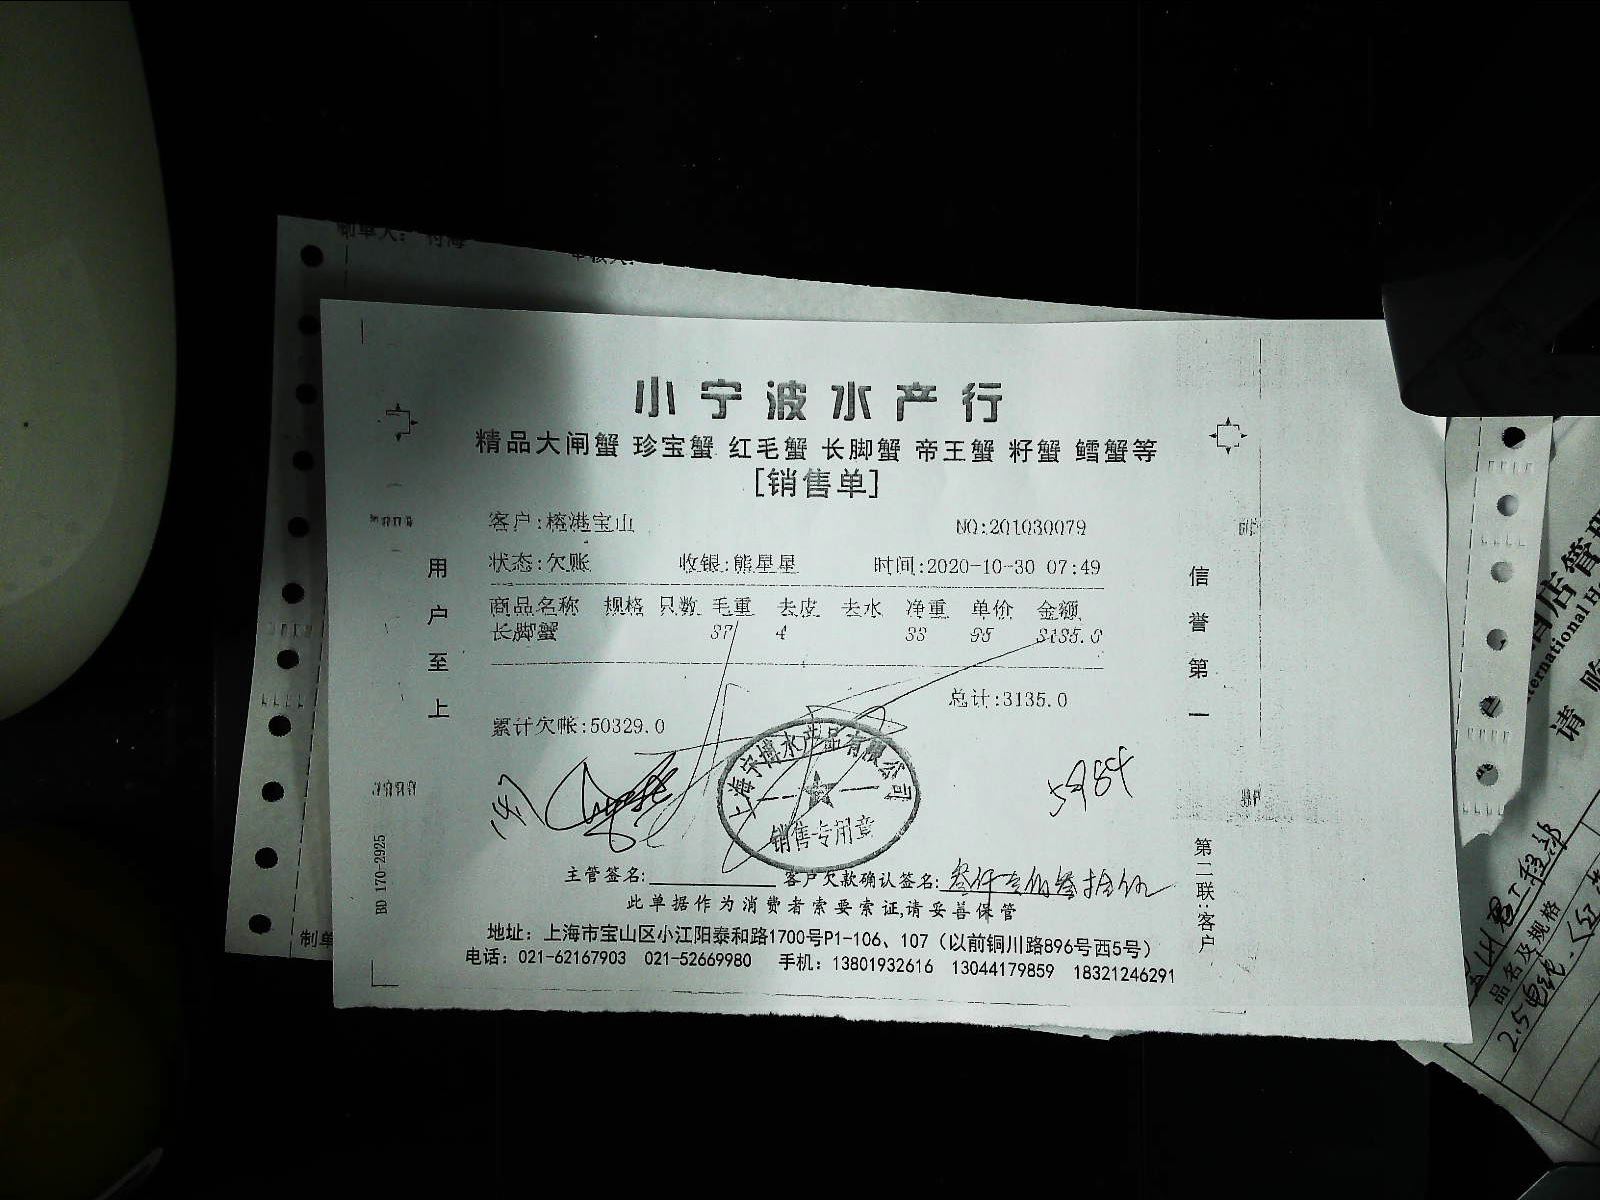 制单人：付海
审核人：
小宁波水产行
精品大闸蟹 珍宝蟹 红毛蟹 长脚蟹 帝王蟹 籽蟹 鳕蟹等
[销售单]
客户:榕港宝山 NO:201030079
状态:欠账 收银:熊星星 时间:2020-10-30 07:49
商品名称 规格 只数 毛重 去皮 去水 净重 单价 金额
长脚蟹 37 4 33 95 3135.0
总计:3135.0
累计欠帐:50329.0
用户至上
信誉第一
上海宁博水产品有限公司
销售专用章
5984
主管签名: 客户欠款确认签名: 叁仟壹佰叁拾伍
此单据作为消费者索要索证,请妥善保管
地址：上海市宝山区小江阳泰和路1700号P1-106、107（以前铜川路896号西5号）
电话：021-62167903 021-52669980 手机：13801932616 13044179859 18321246291
BD 170-2925
第二联:客户
制单
酒店管理
ternational H
请购
品名及规格
2.5电线